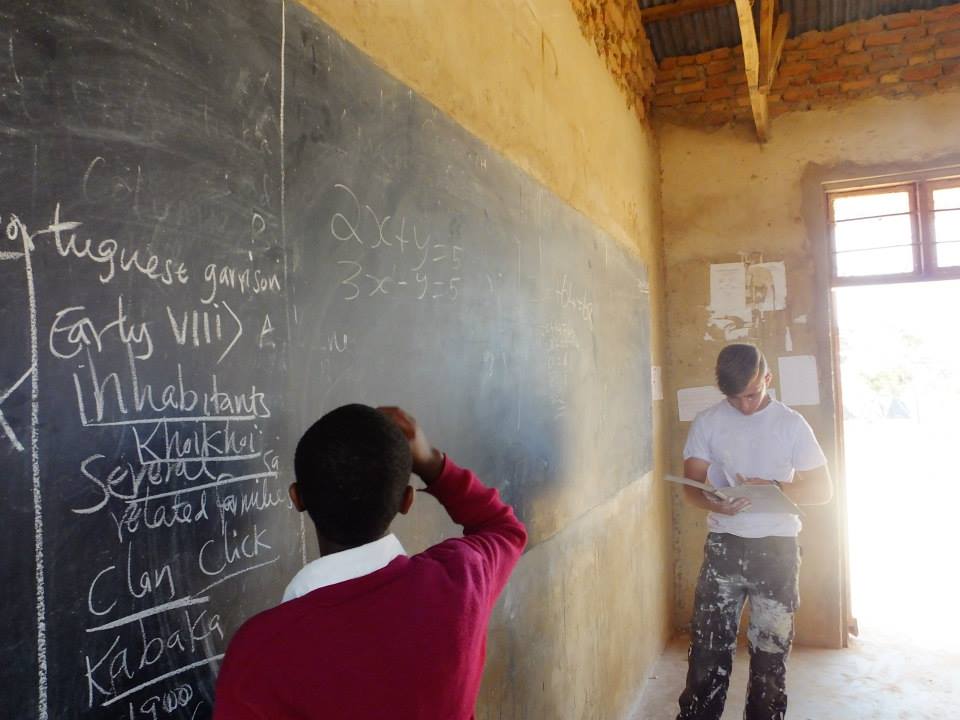 Portuguese garrison
Early VIII> A
inhabitants
Khoikhoi
Several Sa
related families
Clan Click
Kabaka
1900
2x+y=5
3x-y=5